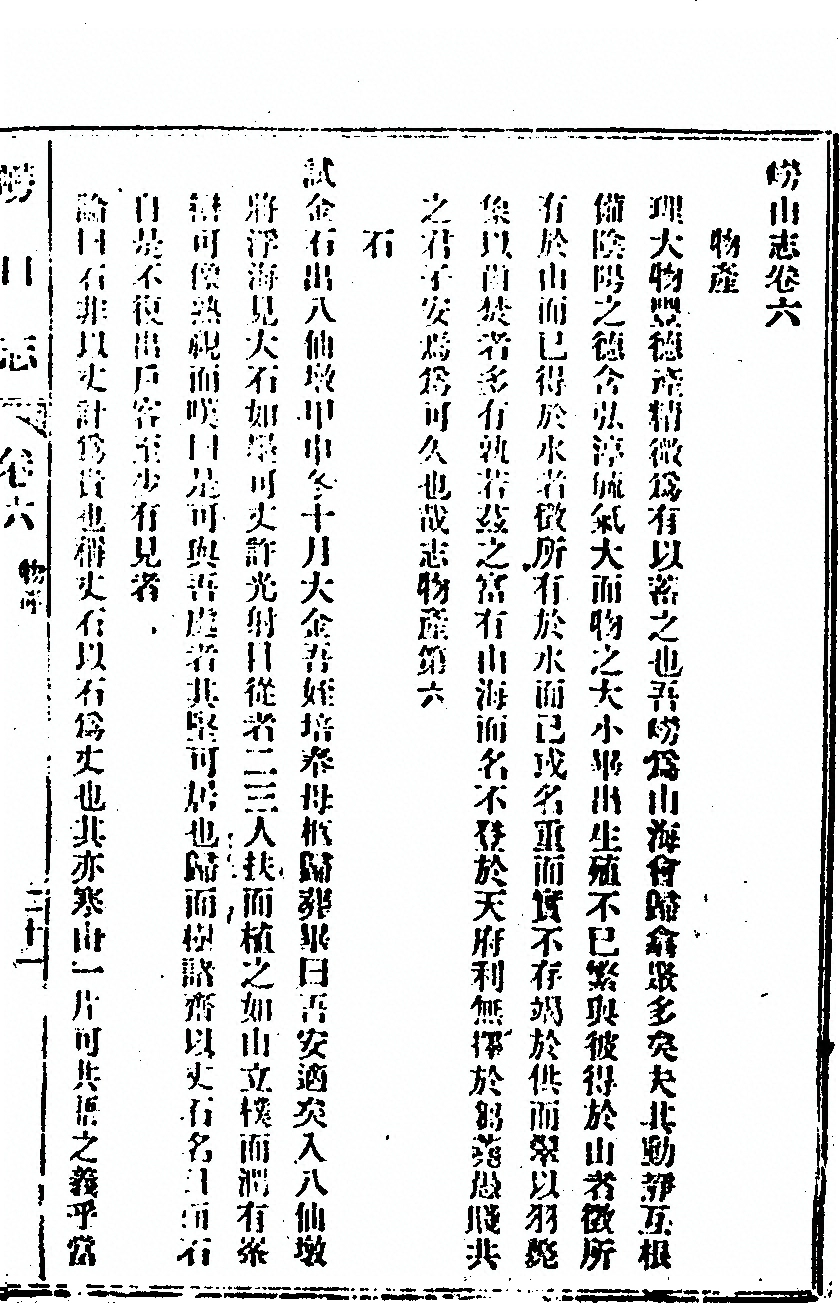 嶗山志卷六
物產
理大物豐德產精微爲有以蓄之也吾嶗爲山海會歸翕聚多矣夫其動靜互根
備陰陽之德含弘淳毓氣大而物之大小畢出生殖不已繁與彼得於山者徵所
有於山而已得於水者徵所有於水而已或名重而實不存竭於供而翠以羽斃
象以齒焚者多有孰若茲之富有山海而名不登於天府利無擇於芻蕘愚賤共
之君子安焉爲可久也哉志物產第六
石
試金石出八仙墩甲申冬十月大金吾姪培奉母柩歸葬畢曰吾安適矣入八仙墩
將浮海見大石如墨可丈許光射日從者二三人扶而植之如山立樸而潤有茶
可像熟視而嘆曰是可與吾處者其堅可居也歸而樹諸齋以丈石名曰丈石
自是不復出戶客至少有見者
論曰石非以丈計爲貴也稱丈石以石爲丈也其亦寒山一片可共語之義乎當
嶗山志
卷六
物產
二十一